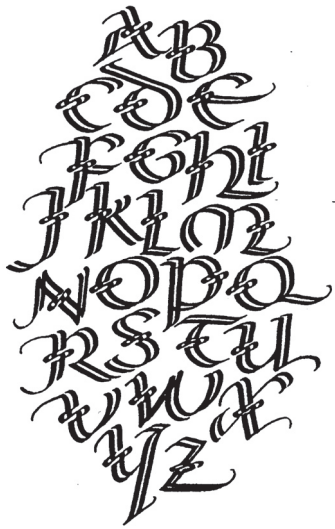 A B
C D E
F G H I
J K L M
N O P Q
R S T U
V W X
Y Z